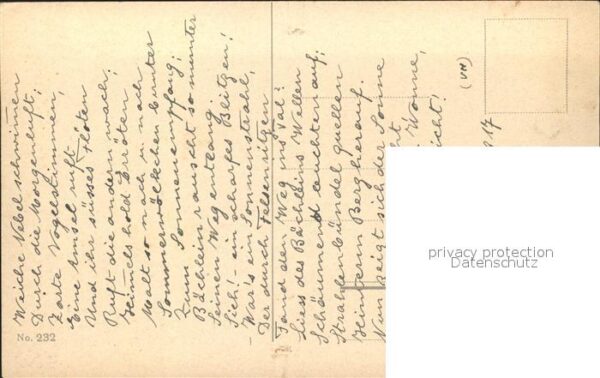 Weiche Nebel schwimmen
Durch die Morgenluft;
Zarte Vogelstimmen,
Eine Amsel ruft
Und ihr süsses Flöten
Ruft die andern wach;
Himmels hold Erröten
Malt so nach u. nach
Sommerwölkchen bunter
Zum Sonnenempfang;
Bächlein rauscht so munter
Seinen Weg entlang.
Sieh! - ein scharfes Blitzen!
- War's ein Sonnenstrahl,
Der durch Felsenritzen
Fand den Weg ins Tal?
Liess des Bächleins Wellen
Schäumend leuchten auf;
Strahlenbündel quellen
Hinterm Berg herauf.
Nun zeigt sich der Sonne
Wonne,
icht!
17
No. 232
privacy protection
Datenschutz